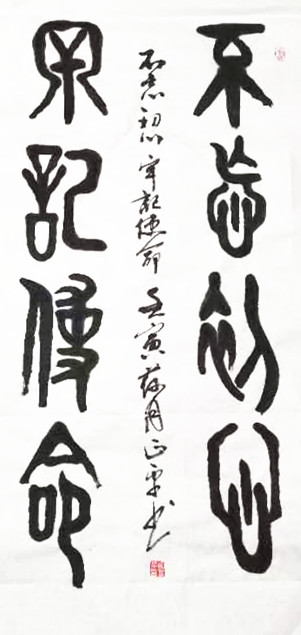 不忘初心
牢记使命
不忘初心牢記使命壬寅荷月正平书